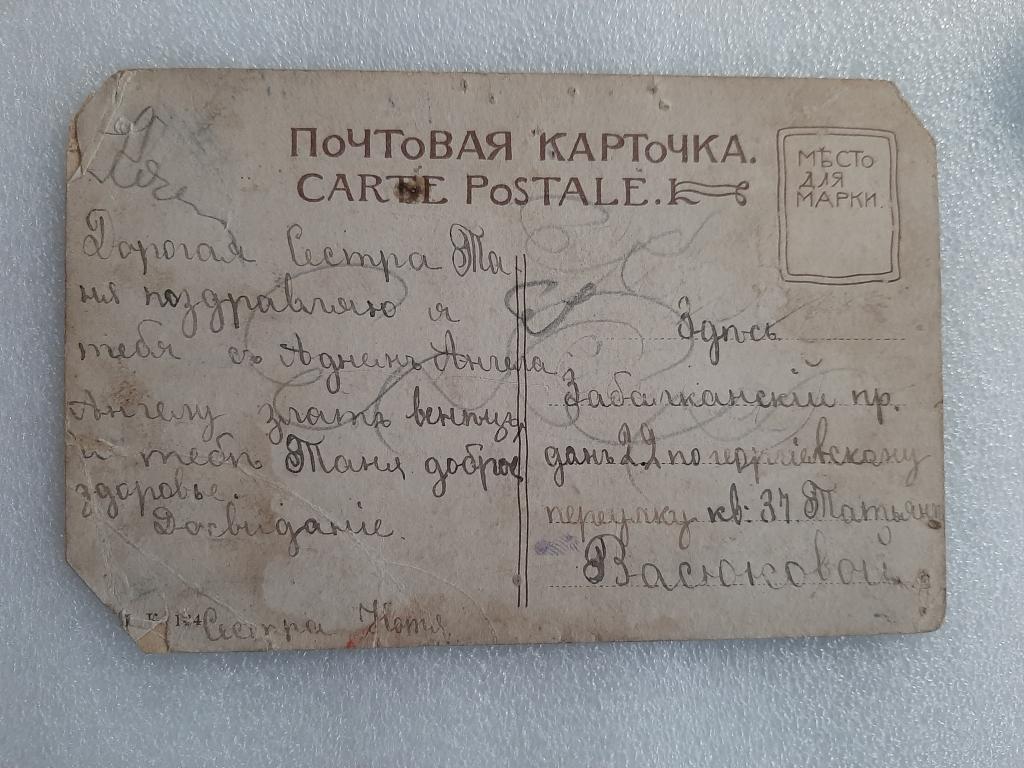 ПОЧТОВАЯ КАРТОЧКА.
CARTE POSTALE.
МѢСТО
ДЛЯ
МАРКИ.
Дорогая Сестра Та
ня поздравляю я
тебя съ Аднемъ Ангела
Ангелу злать венецъ
и тебѣ Таня доброе
здоровье.
Досвиданіе.
Сестра Котя
Здѣсь
Забалканскій пр.
домъ 22 по георгіевскому
переулку кв: 37 Татьяне
Васюковой